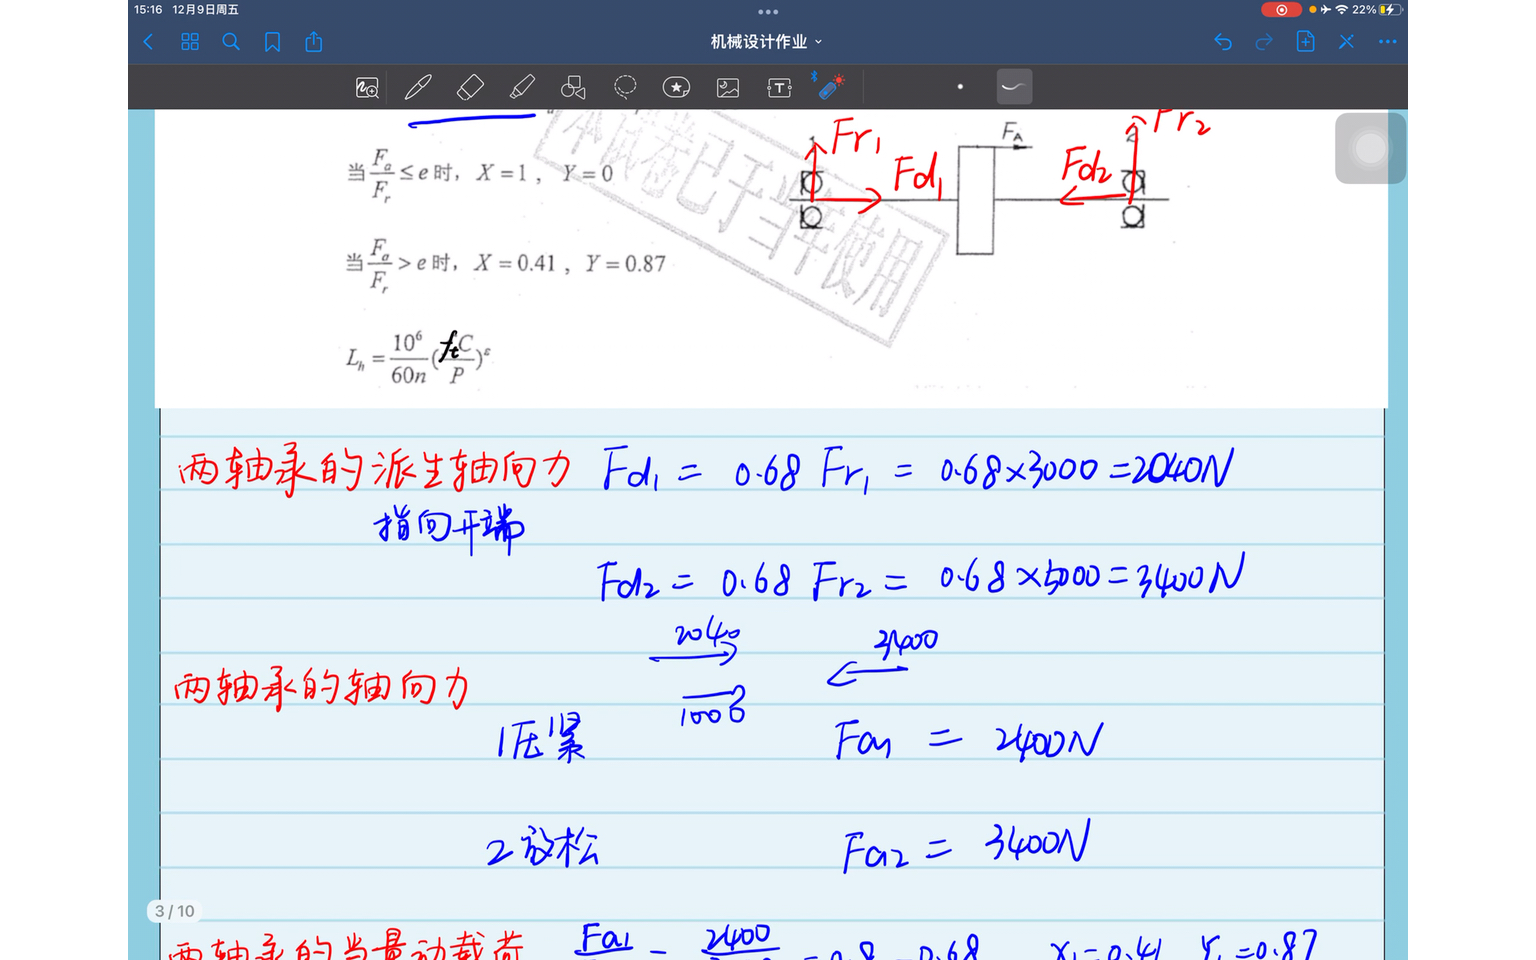 15:16 12月9日周五
22%
机械设计作业
本试卷已于当年使用
当 Fa/Fr ≤ e 时， X = 1 ， Y = 0
Fr1 Fd1 FA Fd2 Fr2
当 Fa/Fr > e 时， X = 0.41 ， Y = 0.87
Lh = 10^6/60n (ftC/P)^ε
两轴承的派生轴向力 Fd1 = 0.68 Fr1 = 0.68×3000=2040N
指向开端
Fd2 = 0.68 Fr2 = 0.68×5000=3400N
2040 3400
两轴承的轴向力
1000
1压紧 Fa1 = 2400N
2放松 Fa2 = 3400N
3 / 10
两轴承的当量动载荷 Fa1 = 2400 = 0.8 0.68 X1=0.41 Y1=0.87